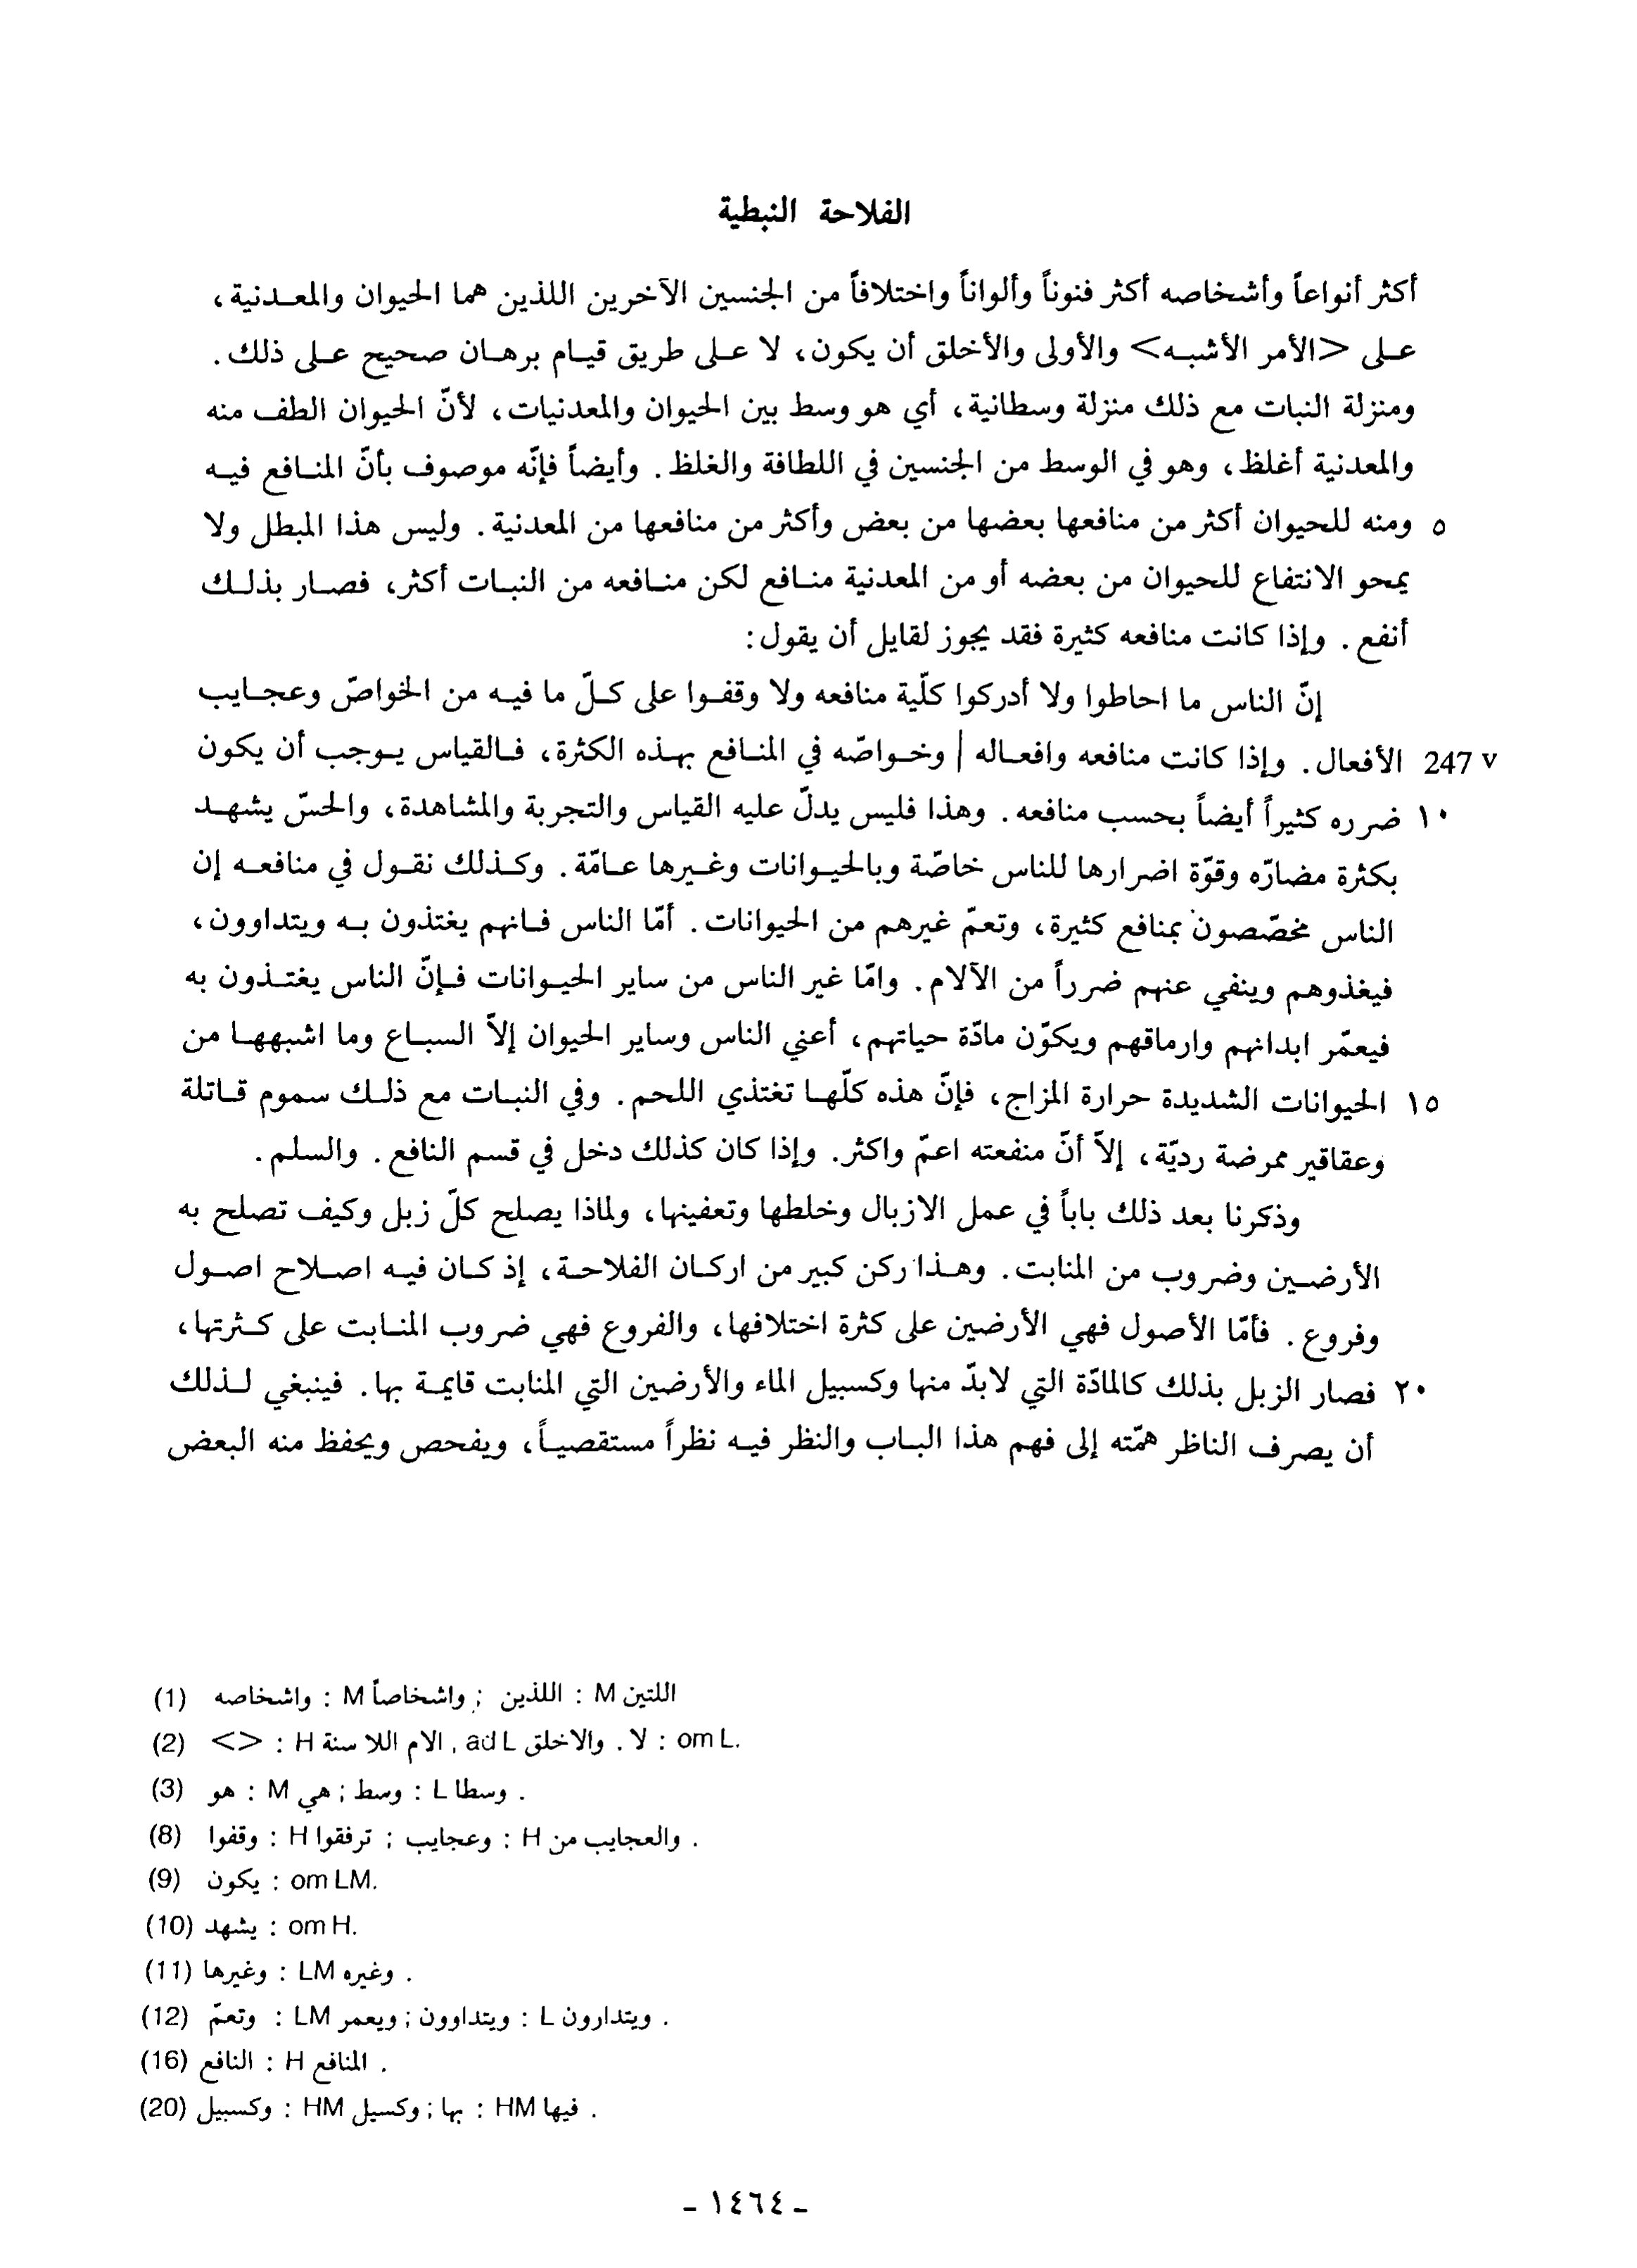 الفلاحة النبطية
أكثر أنواعاً وأشخاصه أكثر فنوناً وألواناً واختلافاً من الجنسين الآخرين اللذين هما الحيوان والمعدنية،
على <الأمر الأشبه> والأولى والأخلق أن يكون، لا على طريق قيام برهان صحيح على ذلك.
ومنزلة النبات مع ذلك منزلة وسطانية، أي هو وسط بين الحيوان والمعدنيات، لأنّ الحيوان الطف منه
والمعدنية أغلظ، وهو في الوسط من الجنسين في اللطافة والغلظ. وأيضاً فإنّه موصوف بأنّ المنافع فيه
٥ ومنه للحيوان أكثر من منافعها بعضها من بعض وأكثر من منافعها من المعدنية. وليس هذا المبطل ولا
يمحو الانتفاع للحيوان من بعضه أو من المعدنية منافع لكن منافعه من النبات أكثر، فصار بذلك
أنفع. وإذا كانت منافعه كثيرة فقد يجوز لقايل أن يقول:
إنّ الناس ما احاطوا ولا أدركوا كلّية منافعه ولا وقفوا على كلّ ما فيه من الخواصّ وعجايب
247 v الأفعال. وإذا كانت منافعه وافعاله | وخواصّه في المنافع بهذه الكثرة، فالقياس يوجب أن يكون
١٠ ضرره كثيراً أيضاً بحسب منافعه. وهذا فليس يدلّ عليه القياس والتجربة والمشاهدة، والحسّ يشهد
بكثرة مضارّه وقوّة اضرارها للناس خاصّة وبالحيوانات وغيرها عامّة. وكذلك نقول في منافعه إن
الناس مخصّصون بمنافع كثيرة، وتعمّ غيرهم من الحيوانات. أمّا الناس فانهم يغتذون به ويتداوون،
فيغذوهم وينفي عنهم ضرراً من الآلام. وامّا غير الناس من ساير الحيوانات فإنّ الناس يغتذون به
فيعمّر ابدانهم وارماقهم ويكوّن مادّة حياتهم، أعني الناس وساير الحيوان إلاّ السباع وما اشبهها من
١٥ الحيوانات الشديدة حرارة المزاج، فإنّ هذه كلّها تغتذي اللحم. وفي النبات مع ذلك سموم قاتلة
وعقاقير ممرضة رديّة، إلاّ أنّ منفعته اعمّ واكثر. وإذا كان كذلك دخل في قسم النافع. والسلم.
وذكرنا بعد ذلك باباً في عمل الازبال وخلطها وتعفينها، ولماذا يصلح كلّ زبل وكيف تصلح به
الأرضين وضروب من المنابت. وهذا ركن كبير من اركان الفلاحة، إذ كان فيه اصلاح اصول
وفروع. فأمّا الأصول فهي الأرضين على كثرة اختلافها، والفروع فهي ضروب المنابت على كثرتها،
٢٠ فصار الزبل بذلك كالمادّة التي لابدّ منها وكسبيل الماء والأرضين التي المنابت قايمة بها. فينبغي لذلك
أن يصرف الناظر همّته إلى فهم هذا الباب والنظر فيه نظراً مستقصياً، ويفحص ويحفظ منه البعض
(1) واشخاصه : M واشخاصاً ; اللذين : M اللتين
(2) <> : H الام اللا سنة , ad L والاخلق . لا : om L.
(3) هو : M هي ; وسط : L وسطا .
(8) وقفوا : H ترفقوا ; وعجايب : H والعجايب من .
(9) يكون : om LM.
(10) يشهد : om H.
(11) وغيرها : LM وغيره .
(12) وتعمّ : LM ويعمر ; ويتداوون : L ويتدارون .
(16) النافع : H المنافع .
(20) وكسبيل : HM وكسيل ; بها : HM فيها .
- ١٤٦٤ -